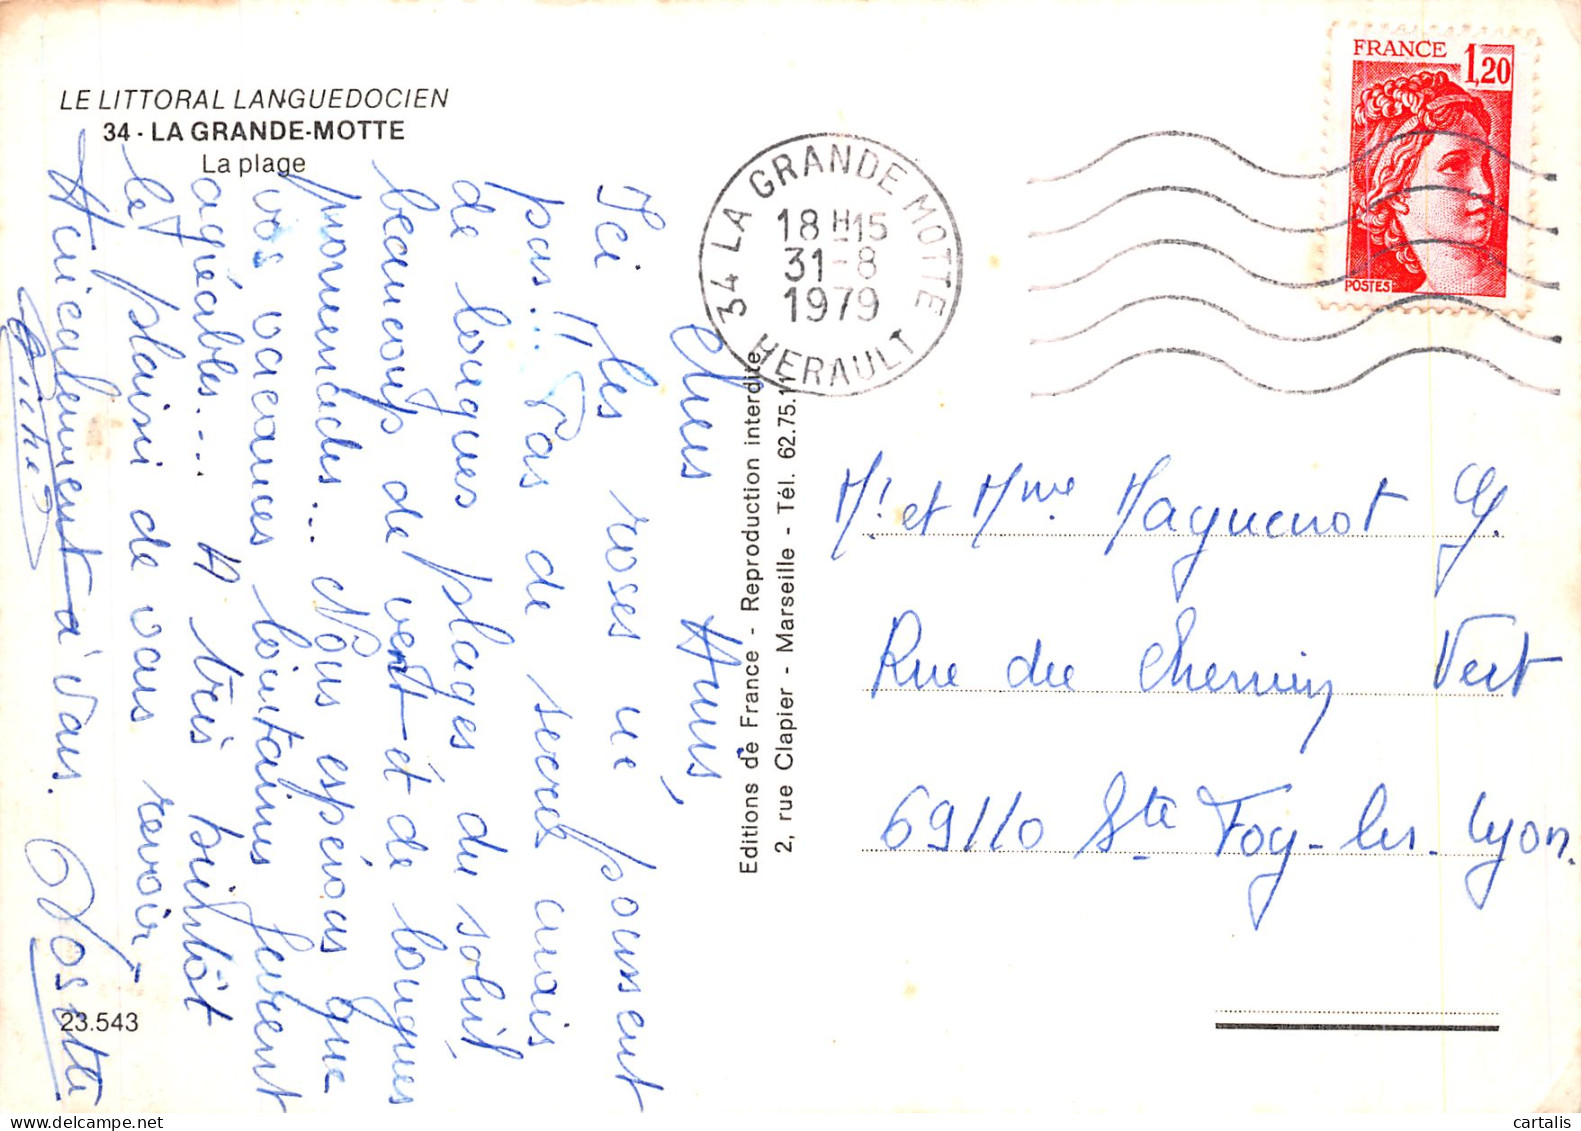 LE LITTORAL LANGUEDOCIEN
34 - LA GRANDE-MOTTE
La plage
Chers Amis,
Ici les roses ne poussent
pas!.. Pas de serres mais
de longues plages du soleil,
beaucoup de vent et de longues
promenades... Nous espérons que
vos vacances lointaines furent
agréables.... A très bientôt
le plaisir de vous revoir,
Amicalement à vous.
Josette
23.543
Editions de France - Reproduction interdite
2, rue Clapier - Marseille - Tél. 62.75.11
34 LA GRANDE MOTTE
18 H15
31-8
1979
HERAULT
FRANCE 1,20
POSTES
Mr et Mme Maguenot G.
Rue du Chemin Vert
69110 Ste Foy-les-Lyon.
cartalis